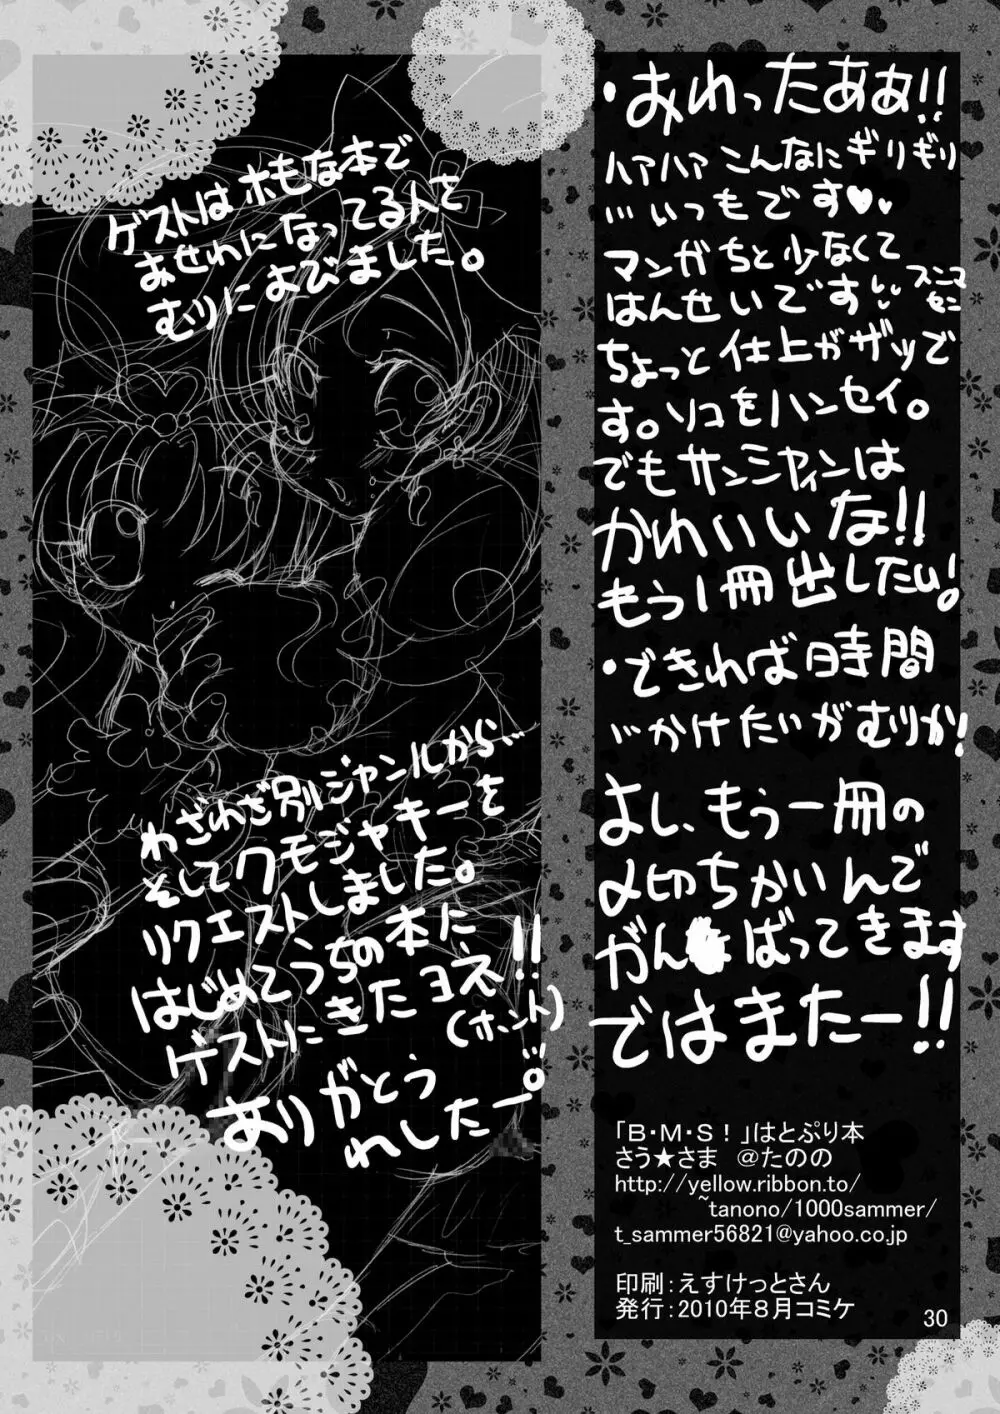 ・おわったあぁ!!
ハアハア こんなにギリギリ
…いつもです♥♥
マンガちと少なくて
はんせいです
スニマセニ
ちょっと仕上がザツで
す。ソコをハンセイ。
でもサンシャインは
かわいいな!!
もう1冊出したい!
・できれば時間
…かけたいがむりか!
よし、もう一冊の
〆切ちかいんで
がんばってきます
ではまたー!!
ゲストはホモな本で
おせわになってる人を
むりによびました。
わざわざ別ジャンルから…
そしてクモジャキーを
リクエストしました。
はじめてうちの本に
ゲストにきたヨネ!!
(ホント)
ありがとう
れしたー。
「B・M・S！」はとぷり本
さう★さま　@たのの
http://yellow.ribbon.to/
~tanono/1000sammer/
t_sammer56821@yahoo.co.jp
印刷：えすけっとさん
発行：2010年8月コミケ
30